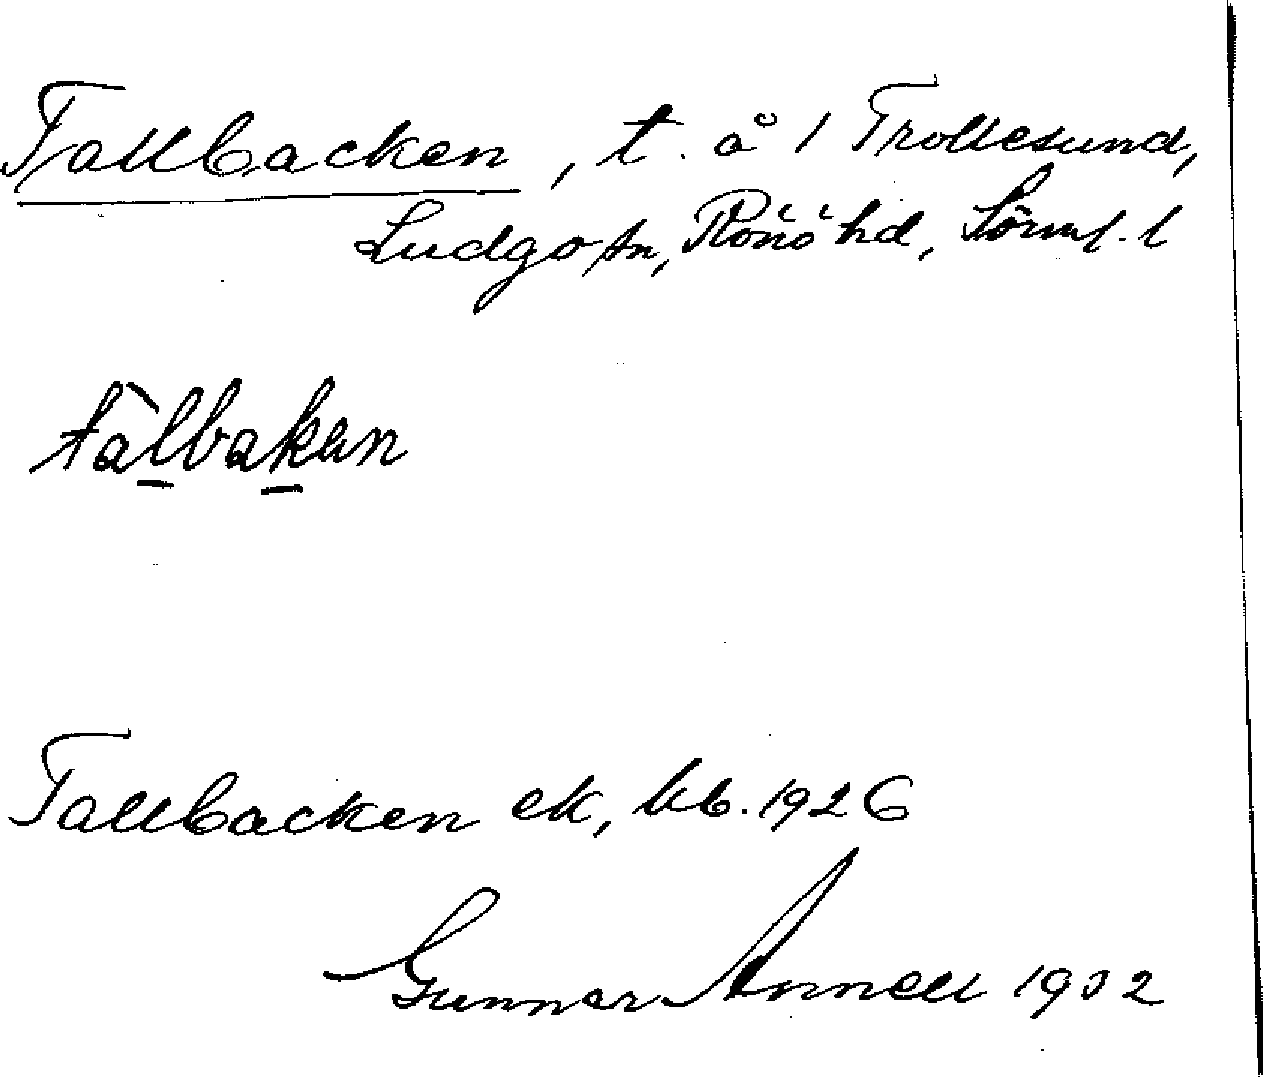 Tallbacken, t. å 1 Trollesund,
Ludgo sn, Rönö hd, Sörml. l
tàlbakən
Tallbacken ek, kb. 1926
Gunnar Annell 1932